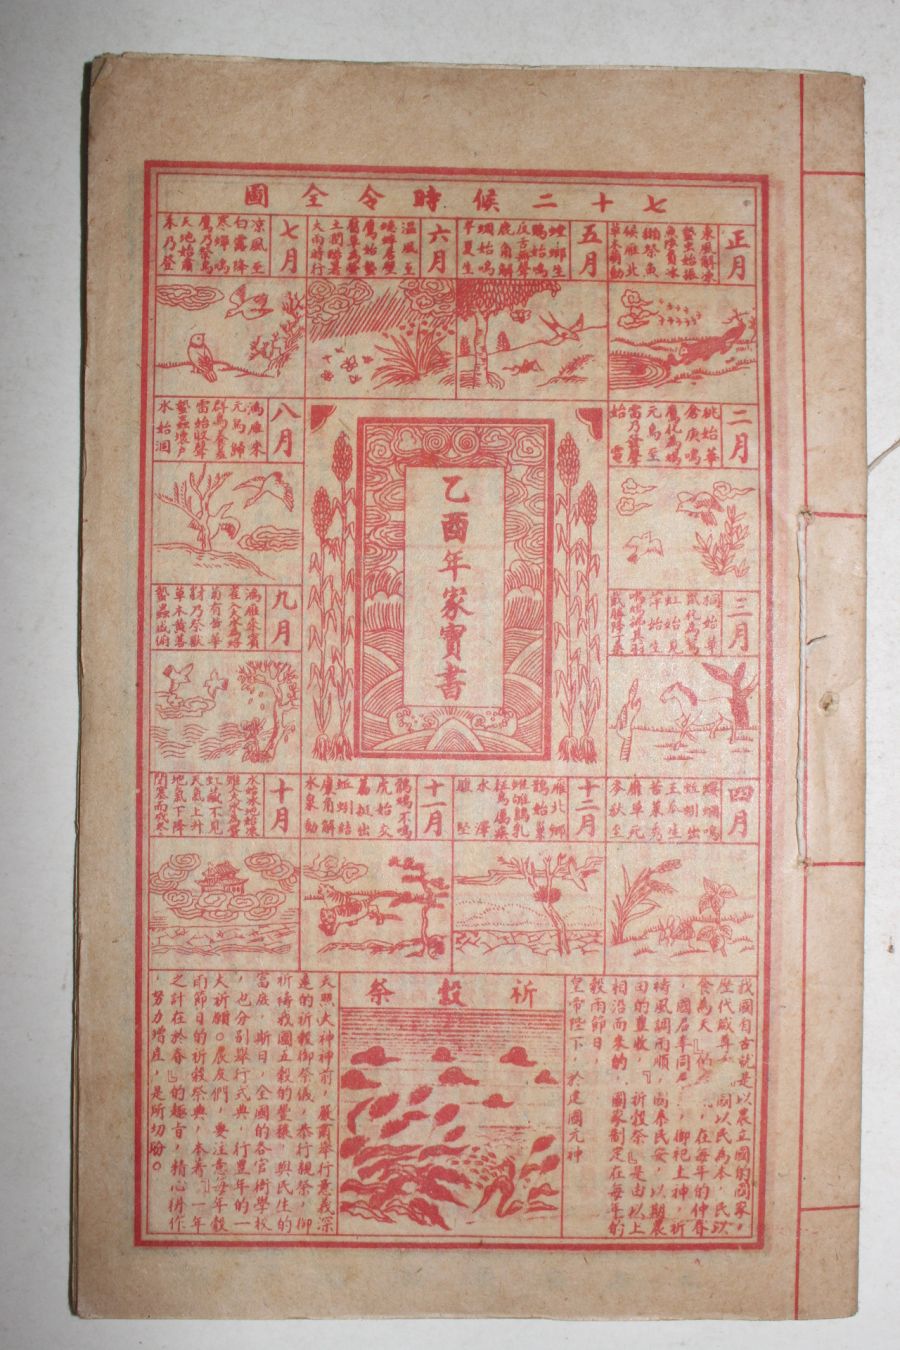 七十二候時令全圖
正月
東風解凍
蟄虫始振
魚陟負冰
獺祭魚
候雁北
草木萌動
二月
桃始華
倉庚鳴
鷹化為鳩
元鳥至
雷乃發聲
始電
三月
桐始華
田鼠化為鴽
虹始見
萍始生
鳴鳩拂其羽
戴勝降于桑
四月
螻蟈鳴
蚯蚓出
王瓜生
苦菜秀
靡草死
麥秋至
五月
螳螂生
鵙始鳴
反舌無聲
鹿角解
蜩始鳴
半夏生
六月
溫風至
蟋蟀居壁
鷹始摯
腐草為螢
土潤溽暑
大雨時行
七月
涼風至
白露降
寒蟬鳴
鷹乃祭鳥
天地始肅
禾乃登
八月
鴻雁來
元鳥歸
群鳥養羞
雷始收聲
蟄蟲壞戶
水始涸
九月
鴻雁來賓
雀入大水為蛤
菊有黃華
豺乃祭獸
草木黃落
蟄蟲咸俯
十月
水始冰地始凍
雉入大水為蜃
虹藏不見
天氣上升
地氣下降
閉塞而成冬
十一月
鶡鴠不鳴
虎始交
荔挺出
蚯蚓結
麋角解
水泉動
十二月
雁北鄉
鵲始巢
雉雊鷄乳
征鳥厲疾
水澤
腹堅
乙酉年家寶書
祈穀祭
我國自古就是以農立國的國家，
歷代咸尊
食為天』的 在每年的仲春
，國君率同 ，御祀上神，祈
禱風調雨順，國泰民安，以期農
田的豐收，『祈穀祭』是由以上
相沿而來的，國家制定在每年的
穀雨節日，
皇帝陛下，於建國元神
天照大神神前，嚴肅舉行意義深
遠的祈穀御祭儀，恭行親祭，御
祈禱我國五穀的豐穰，與民生的
富庶，斯日，全國的各官衙學校
，也分別舉行式典，行豐年的一
大祈願。農友們，要注意每年穀
雨節日的祈穀祭典，本著『一年
之計在於春』的趣旨，精心耕作
，努力增產，是所切盼。